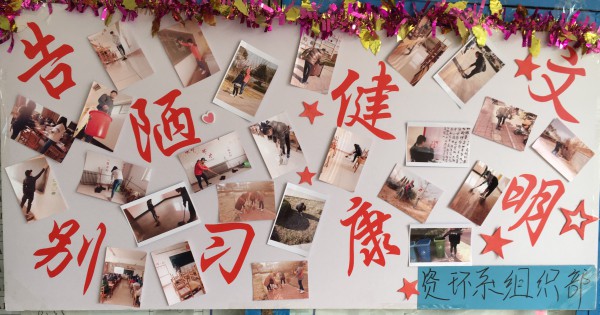 告别
陋习
健康
文明
资环系组织部